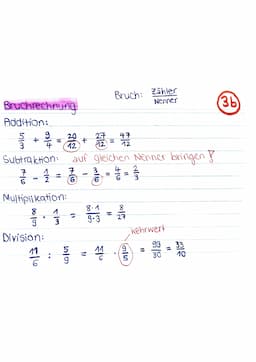 Bruch: Zähler/Nenner
3b
Bruchrechnung
Addition:
5/3 + 9/4 = 20/12 + 27/12 = 47/12
Subtraktion: auf gleichen Nenner bringen!
7/6 - 1/2 = 7/6 - 3/6 = 4/6 = 2/3
Multiplikation:
8/9 · 1/3 = 8·1/9·3 = 8/27
Kehrwert
Division:
11/6 : 5/9 = 11/6 · 9/5 = 99/30 = 33/10